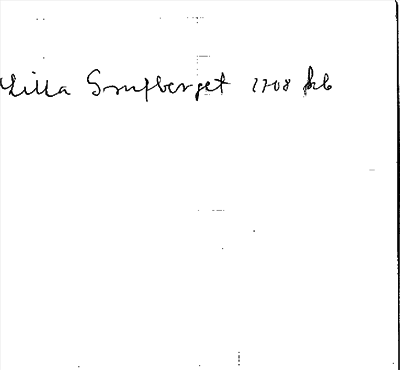 Lilla Grufberget 1708 hb